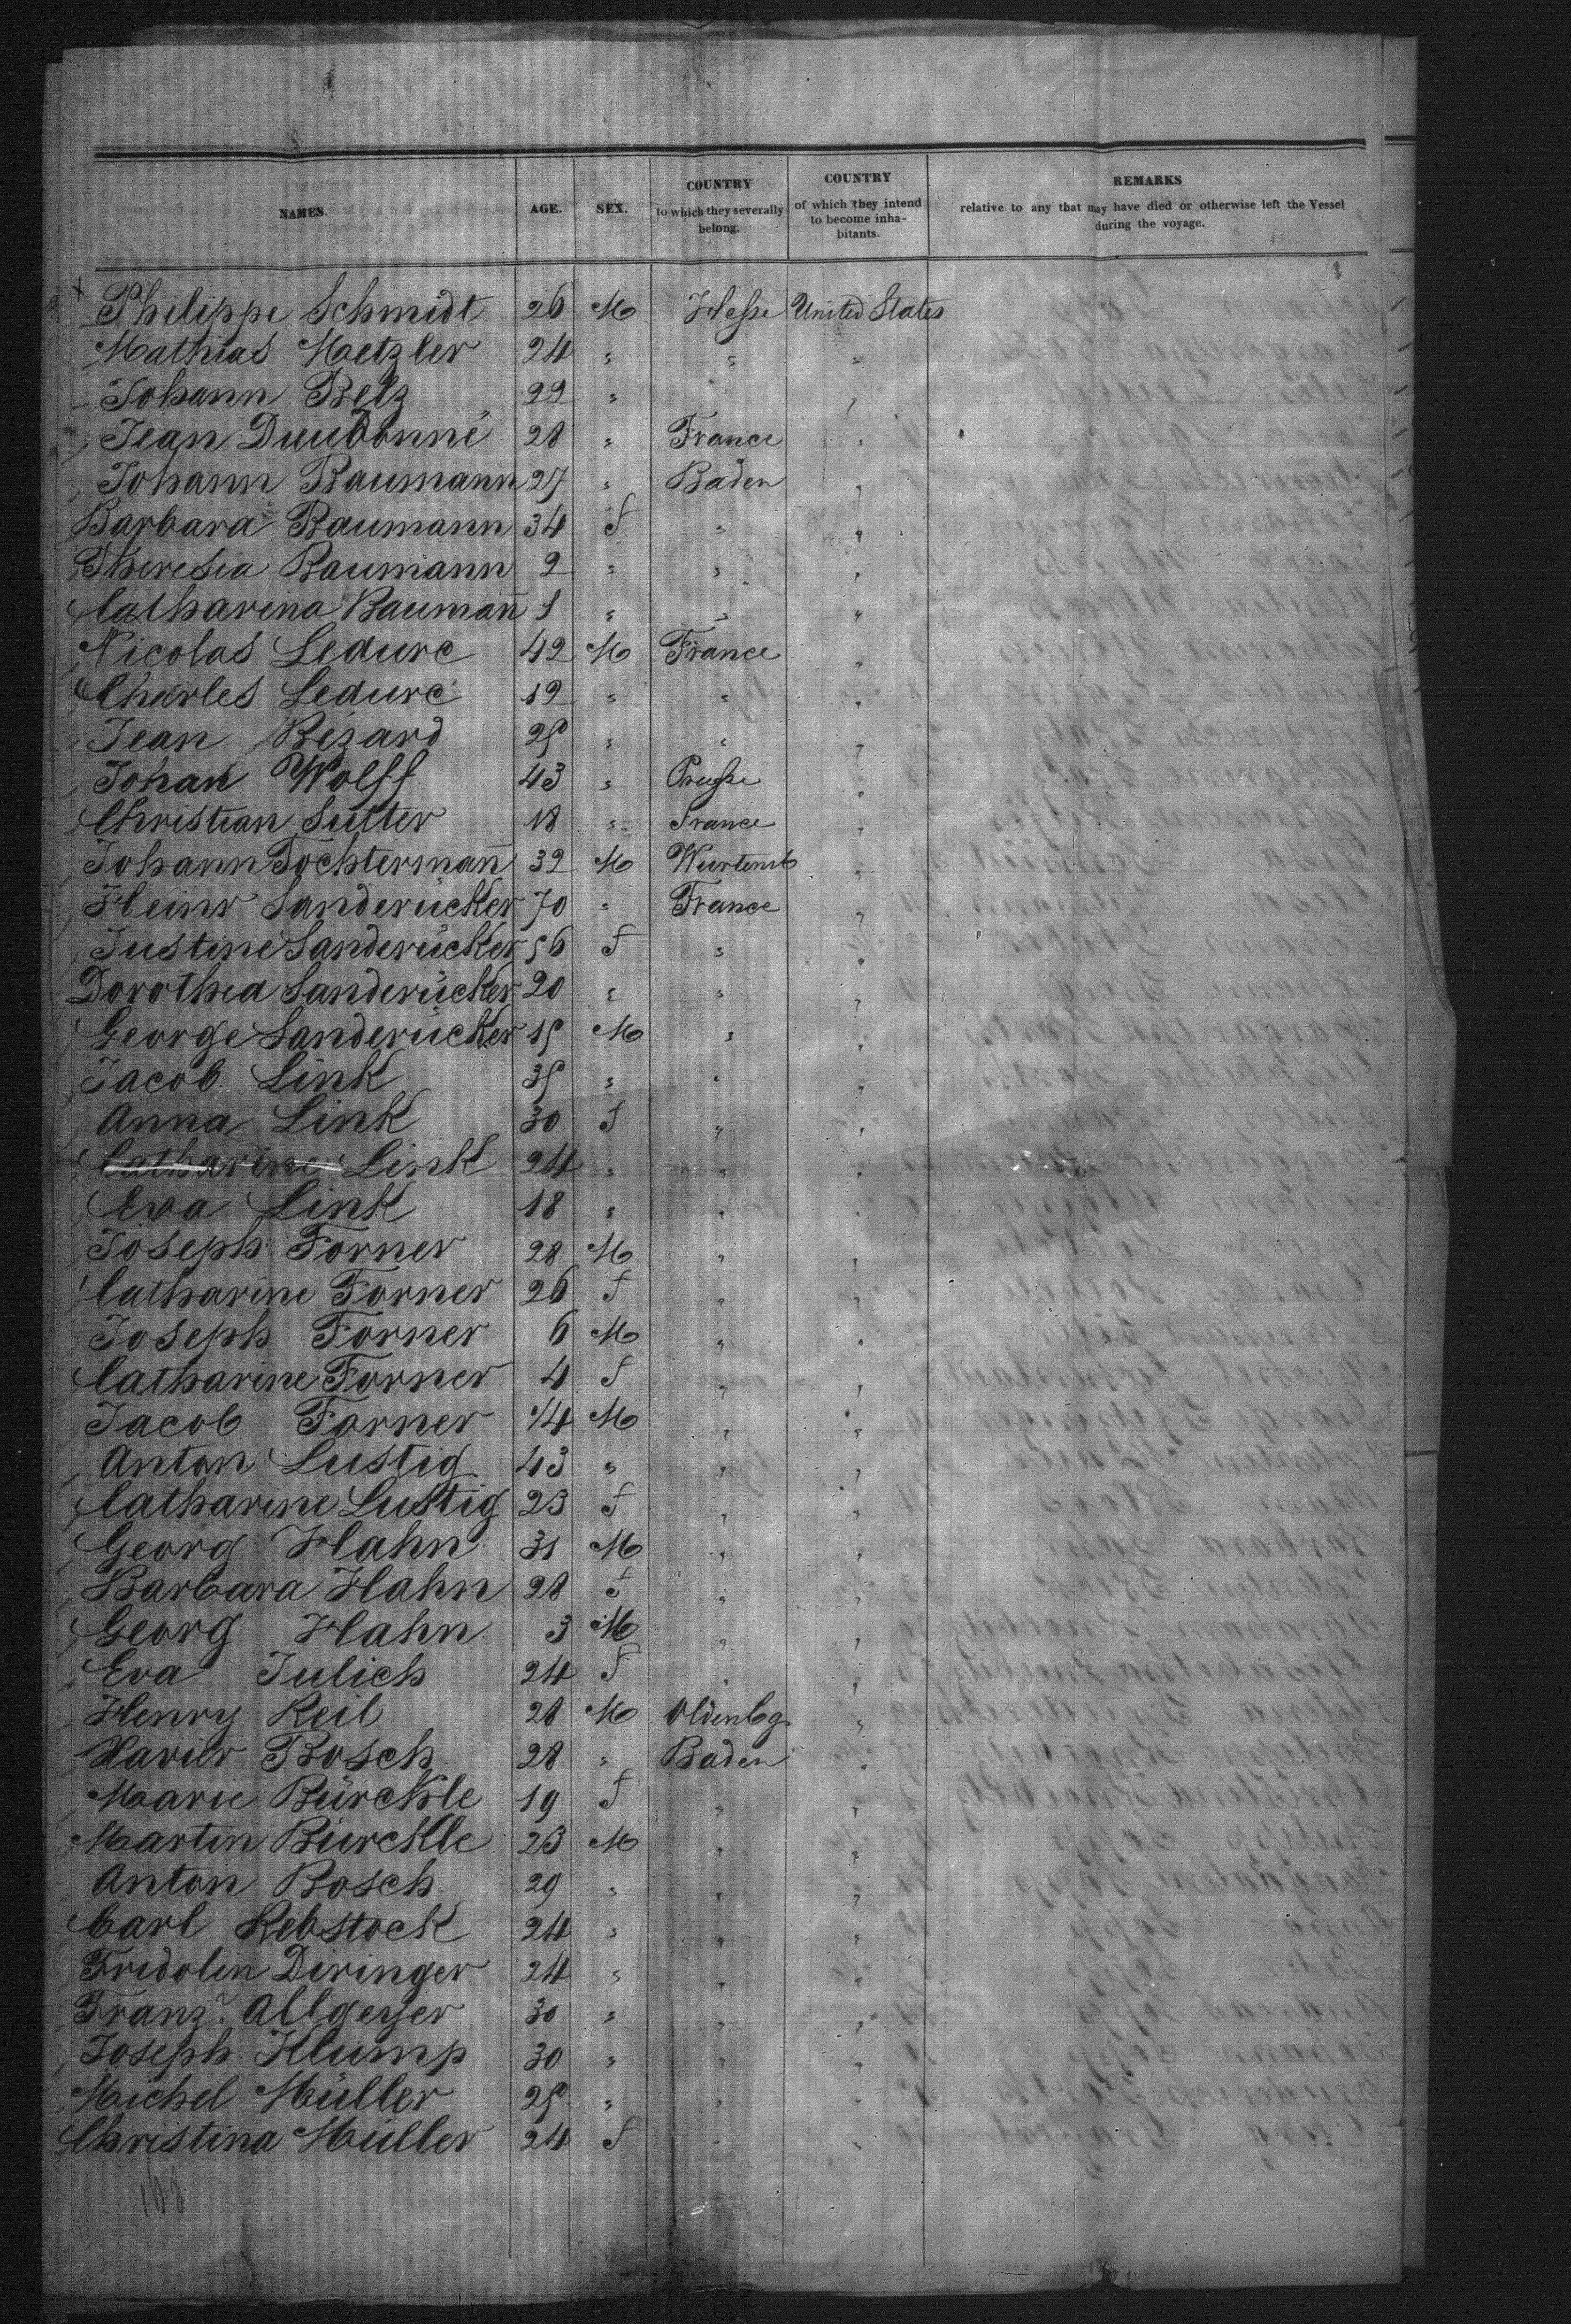 NAMES. AGE. SEX. COUNTRY to which they severally belong. COUNTRY of which they intend to become inhabitants. REMARKS relative to any that may have died or otherwise left the Vessel during the voyage.
Philippe Schmidt 26 M Hesse United States
Mathias Metzler 24 " " "
Johann Belz 22 " " "
Jean Dieudonné 28 " France "
Johann Baumann 27 " Baden "
Barbara Baumann 34 f " "
Theresia Baumann 2 " " "
Catharina Baumann̄ 1 " " "
Nicolas Ledure 42 M France "
Charles Ledure 12 " " "
Jean Bézard 25 " " "
Johan Wolff 43 " Preusse "
Christian Sutter 18 " France "
Johann Tochterman̄ 32 M Wurtemb "
Heinr Sanderücker 70 " France "
Justine Sanderücker 56 f " "
Dorothea Sanderücker 20 " " "
George Sanderücker 15 M " "
Jacob Link 35 " " "
Anna Link 30 f " "
Catharine Link 24 " " "
Eva Link 18 " " "
Joseph Forner 28 M " "
Catharine Forner 26 f " "
Joseph Forner 6 M " "
Catharine Forner 4 f " "
Jacob Forner 1/4 M " "
Anton Lustig 43 " " "
Catharine Lustig 23 f " "
Georg Hahn 31 M " "
Barbara Hahn 28 f " "
Georg Hahn 3 M " "
Eva Julich 24 f " "
Henry Keil 28 M Oldenbg "
Xavier Bosch 28 " Baden "
Marie Bürckle 19 f " "
Martin Bürckle 23 M " "
Anton Bosch 29 " " "
Carl Rebstock 24 " " "
Fridolin Diringer 24 " " "
Franz Allgeyer 30 " " "
Joseph Klump 30 " " "
Michel Müller 25 " " "
Christina Müller 24 f " "
168